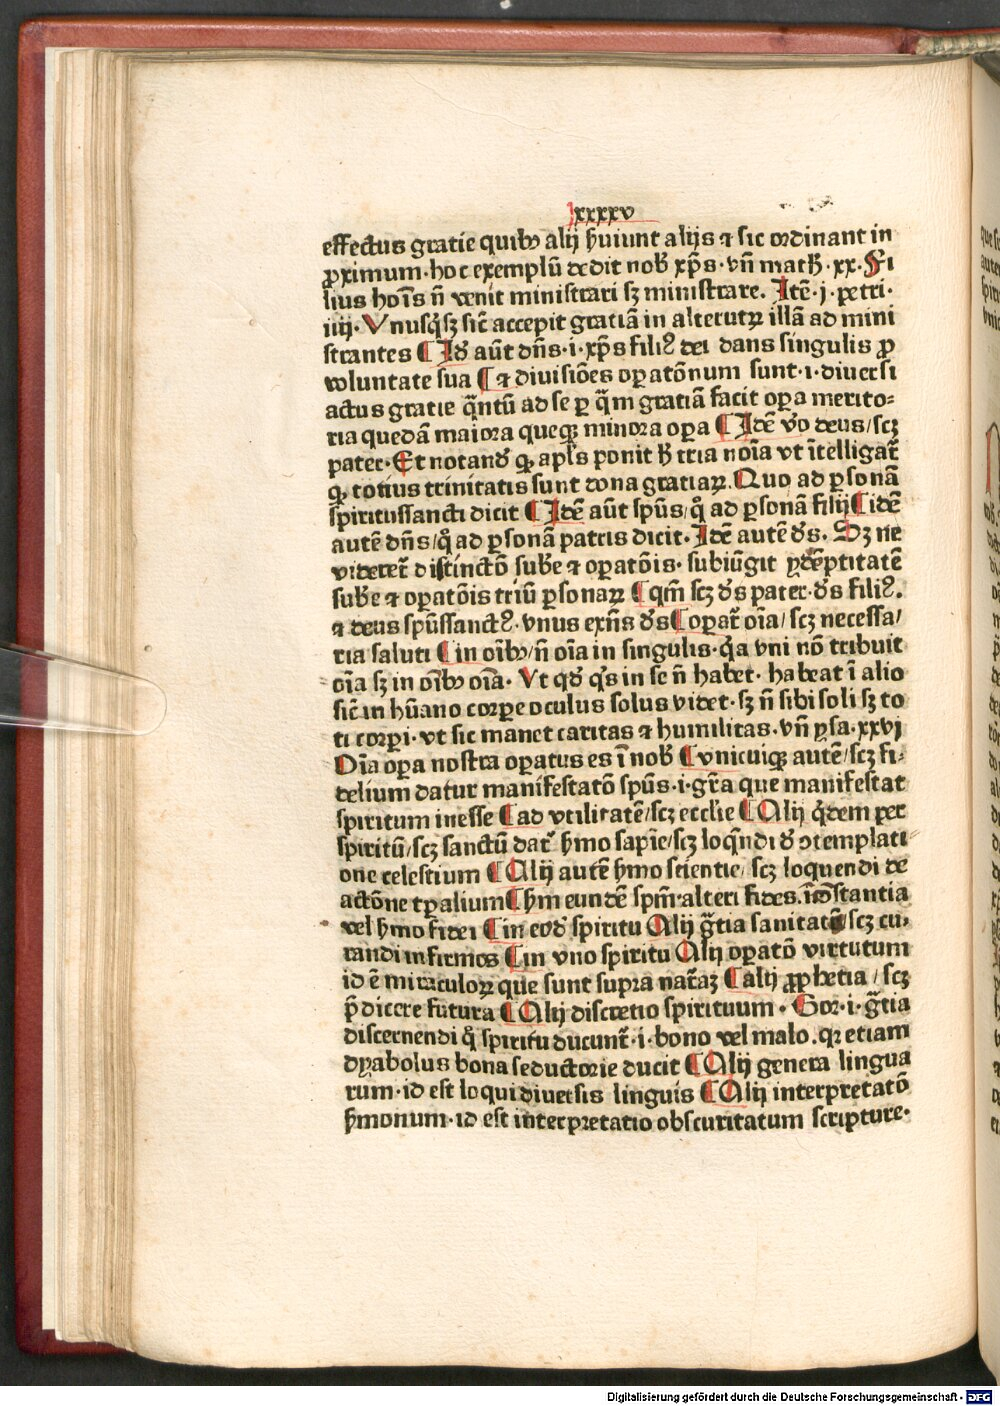 xxxxv
effectus gratie quibꝫ alij ẜuiunt alijs ⁊ sic ordinant in
ꝓximum·hoc exemplū dedit nob̄ xp̄s·vn̄ math̄·xx·Fi
lius hoīs n̄ venit ministrari sꝫ ministrare. Itē·j·petri·
iiij·Vnusq̄sꝫ sic̄ accepit gratiā in alterutꝝ illā ad mini
strantes ¶ Id̄ aūt dn̄s·i·xp̄s filiꝰ dei dans singulis ꝓ
voluntate sua ¶ ⁊ divisiōes oꝑatōnum sunt·i·diuersi
actus gratie q̄ntū ad se ꝑ q̄m gratiā facit oꝑa merito⸗
ria quedā maiora queqꝫ minora oꝑa ¶ Idē v̄o deus/scꝫ
pater·Et notand̄ ꝙ apl̄s ponit h̄ tria noīa vt ītelligat᷑
ꝙ totius trinitatis sunt dona gratiaꝝ. Quo ad ꝑsonā
spiritussancti dicit ¶ Idē aūt spūs/q̄ ad ꝑsonā filij ¶ idē
autē dn̄s/q̄ ad ꝑsonā patris dicit· Idē autē d̄s. Sꝫ ne
videret᷑ distinctō sub̄e ⁊ oꝑatōis· subiūgit ydēptitatē
sub̄e ⁊ oꝑatōis triū ꝑsonaꝝ ¶ qm̄ scꝫ d̄s pater·d̄s filiꝰ.
⁊ deus spūssanctꝰ·vnus exn̄s d̄s ¶ oꝑat᷑ oīa/ scꝫ necessa/
ria saluti ¶ in oībꝫ/n̄ oīa in singulis·q̄a vni nō tribuit
oīa sꝫ in oībꝫ oīa· Vt qd̄ q̄s in se n̄ habet·habeat ī alio
sic̄ in hūano corꝑe oculus solus videt·sꝫ n̄ sibi soli sꝫ to
ti corꝑi·vt sic manet caritas ⁊ humilitas·vn̄ ysa·xxvj
Oīa oꝑa nostra oꝑatus es ī nob̄ ¶ vnicuiqꝫ autē/scꝫ fi⸗
delium datur manifestatō spūs·i·gr̄a que manifestat
spiritum inesse ¶ ad vtilitatē/scꝫ eccl̄ie ¶ Alij q̄dem per
spiritū/scꝫ sanctū dat᷑ ẜmo sapīe/scꝫ loq̄ndi d̄ ꝯtemplati
one celestium ¶ Alij autē ẜmo scientie/ scꝫ loquendi de
actōne tꝑalium ¶ ẜm eundē spm̄·alteri fides.īcōstantia
vel ẜmo fidei ¶ in eod̄ spiritu Alij gr̄tia sanitatū/scꝫ cu⸗
randi infirmos ¶ in vno spiritu Alij oꝑatō virtutum
id ē miraculoꝝ que sunt supra nat᷑aꝫ ¶ alij ꝓphetia / scꝫ
p̄dicere futura ¶ Alij discretio spirituum · Gor·i·gr̄tia
discernendi q̄ spiritu ducunt᷑·i·bono vel malo.qꝛ etiam
dyabolus bona seductorie ducit ¶ Alij genera lingua
rum·id est loqui diuersis linguis ¶ Alij interpretatō
ẜmonum·id est interpretatio obscuritatum scripture·
Digitalisierung gefördert durch die Deutsche Forschungsgemeinschaft - DFG